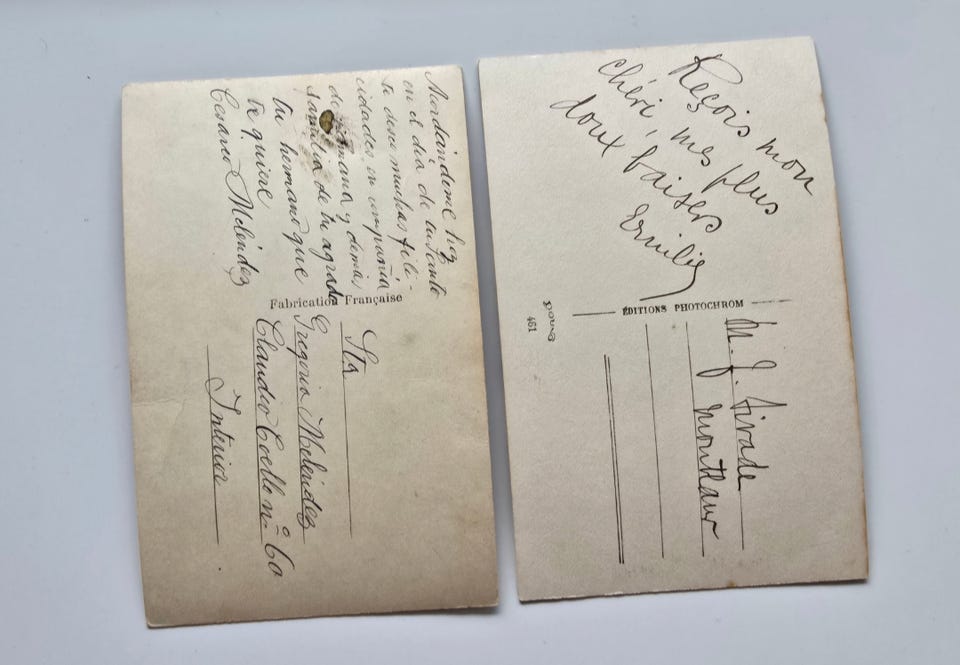 hoy
en el dia de tu santo
te deseo muchas feli-
cidades en compañia
de y demas
familia de tu agrado
tu hermano que
te quiere
Cesareo Meléndez
Fabrication Française
Sta
Gregoria Meléndez
Claudio Coello nº 60
Interior
Reçois mon
chéri, mes plus
doux baisers
Emilie
ÉDITIONS PHOTOCHROM
461
M. J. Sirade
Montlaur